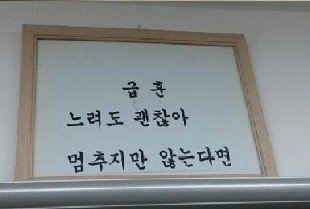 급훈
느려도 괜찮아
멈추지만 않는다면